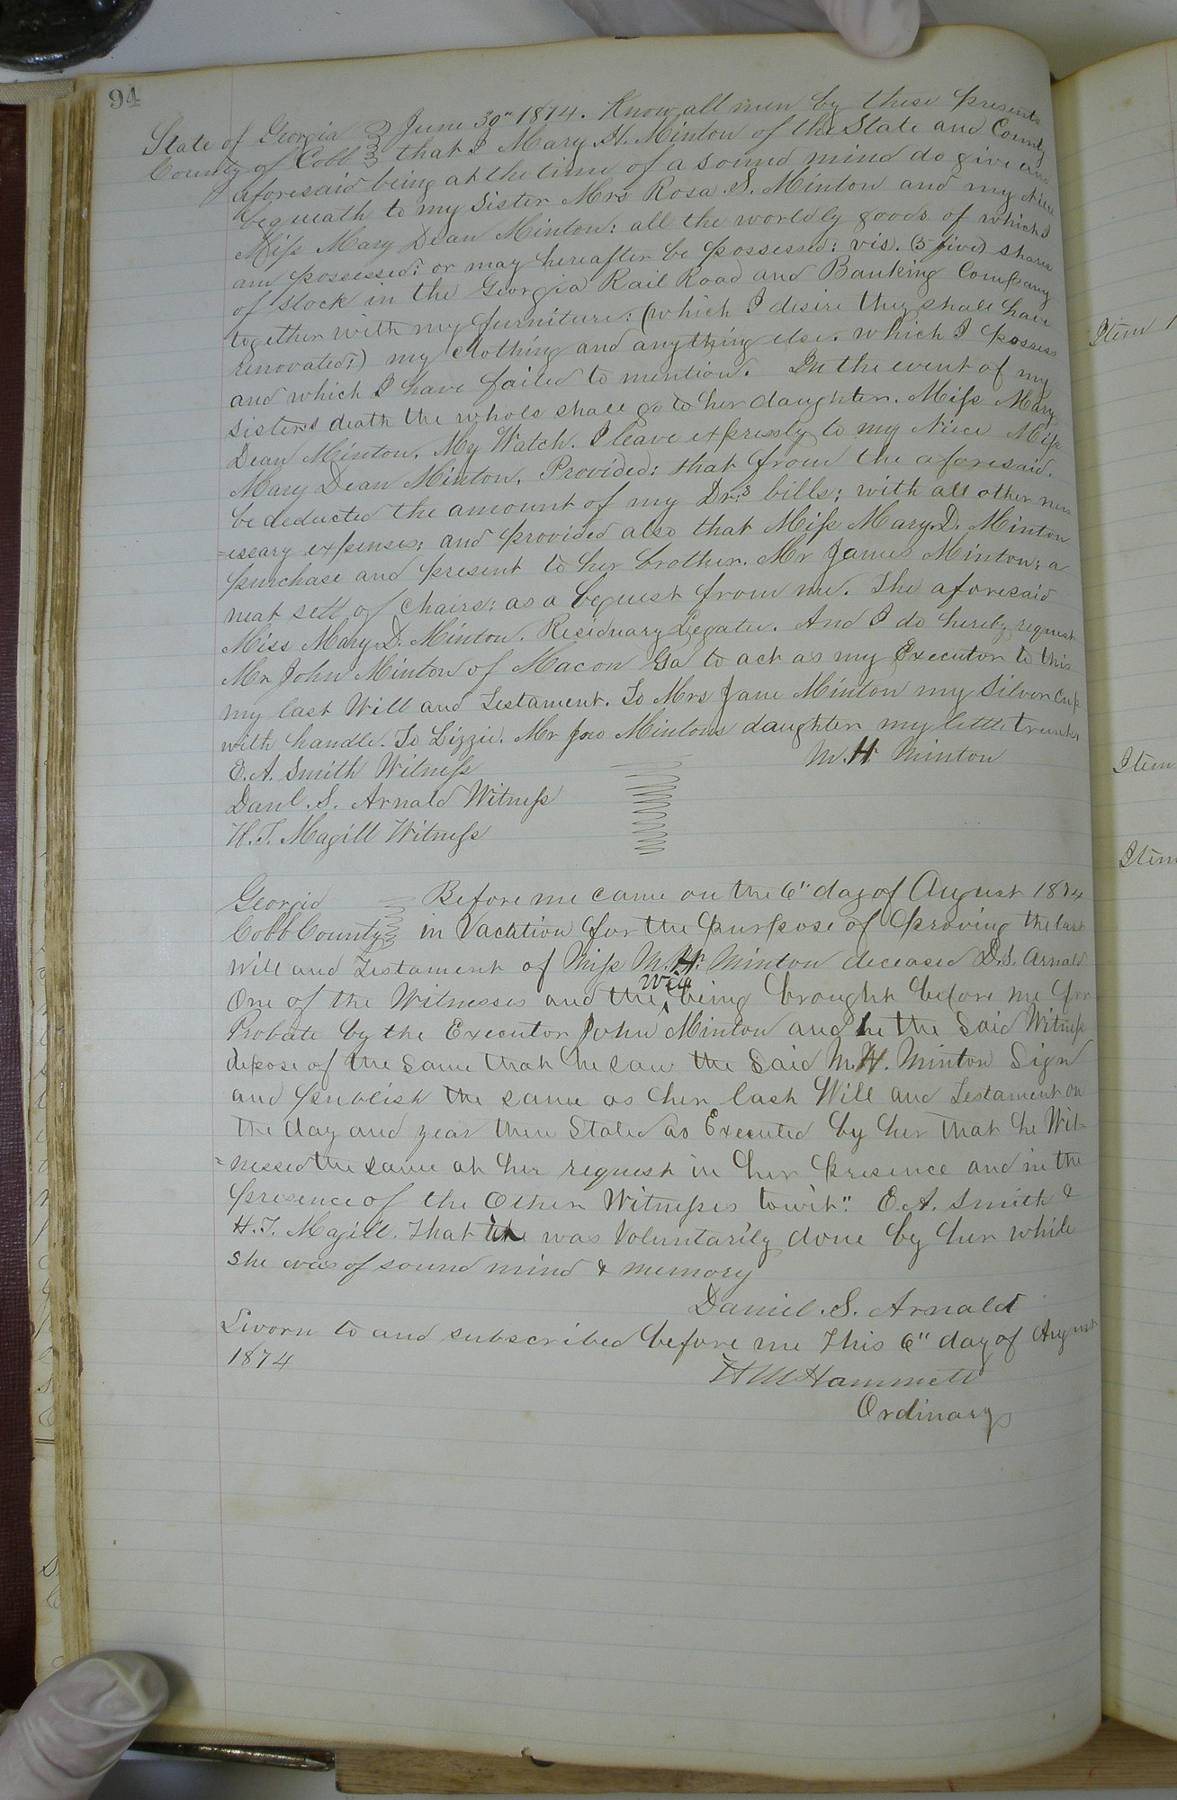 94
State of Georgia } June 30" 1874. Know all men by these presents
County of Cobb } that I Mary H. Minton of the State and County
aforesaid being at the time of a sound mind do give and
bequeath to my Sister Mrs Rosa S. Minton and my Niece
Miss Mary Dean Minton: all the worldly goods of which I
am possessed: or may hereafter be possessed: vis. (5 five) shares
of stock in the Georgia Rail Road and Banking Company
together with my furniture: (which I desire they shall have
renovated:) my clothing and anything else. which I possess
and which I have failed to mention. In the event of my
sisters death the whole shall go to her daughter. Miss Mary
Dean Minton. My Watch. I leave expressly to my Niece Miss
Mary Dean Minton. Provided: that from the aforesaid.
be deducted the amount of my Dr:s bills; with all other nec
=essary expenses; and provided also that Miss Mary D. Minton
purchase and present to her brother. Mr James Minton; a
neat sett of chairs: as a bequest from me. The aforesaid
Miss Mary D. Minton. Residuary Legatee. And I do hereby request
Mr John Minton of Macon Ga to act as my Executor to this
my last Will and Testament. To Mrs Jane Minton my Silver Cup
with handle. To Lizzie. Mr Jno Mintons daughter my little trunk.
M. H Minton
E. A. Smith Witness
Danl. S. Arnald Witness
H. T. Magill Witness
Georgia } Before me came on the 6" day of August 1874
Cobb County } in Vacation for the purpose of proving the last
Will and Testament of Miss M. H. Minton deceased D. S. Arnald
One of the Witnesses and the Will being brought before me for
Probate by the Executor John Minton and he the Said Witness
depose of the same that he saw the Said M. H. Minton Sign
and publish the same as her last Will and Testament on
the day and year then Stated as Executed by her that he Wit=
=nessed the same at her request in her presence and in the
presence of the Other Witnesses towit" E. A. Smith &
H. T. Magill. That the was Voluntarily done by her while
She was of sound mind & memory
Daniel. S. Arnald
Sworn to and subscribed before me This 6" day of August
1874
H M Hammett
Ordinary
Item 1
Item
Item